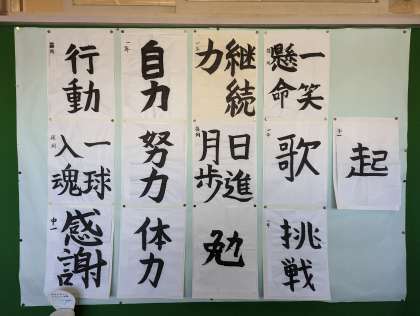 起
一笑
懸命
歌
挑戦
継続
力
日進
月歩
勉
自力
努力
体力
行動
一球
入魂
感謝
中一